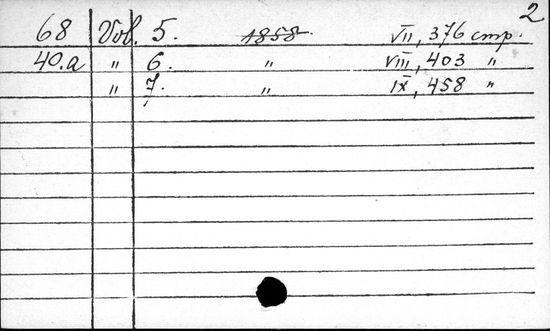 2
68 Vol. 5. 1858. VII, 376 стр.
40.a " 6. " VIII, 403 "
" 7. " IX, 458 "